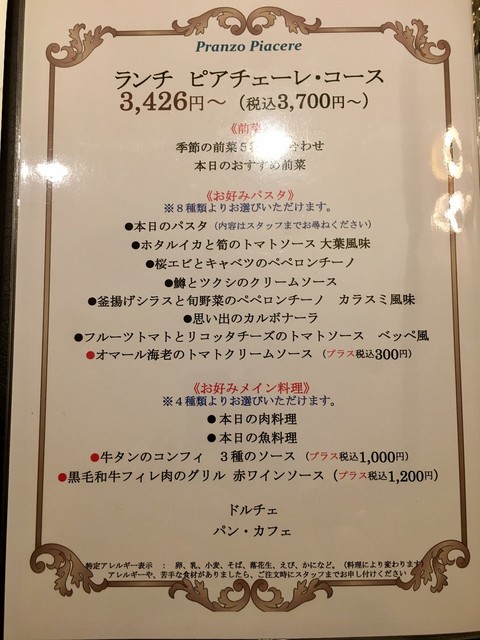 Pranzo Piacere
ランチ ピアチェーレ・コース
3,426円～（税込3,700円～）
《前菜
季節の前菜5 合わせ
本日のおすすめ前菜
《お好みパスタ》
※８種類よりお選びいただけます。
●本日のパスタ（内容はスタッフまでお尋ねください）
●ホタルイカと筍のトマトソース 大葉風味
●桜エビとキャベツのペペロンチーノ
●鱒とツクシのクリームソース
●釜揚げシラスと旬野菜のペペロンチーノ カラスミ風味
●思い出のカルボナーラ
●フルーツトマトとリコッタチーズのトマトソース ベッペ風
●オマール海老のトマトクリームソース（プラス税込300円）
《お好みメイン料理》
※４種類よりお選びいただけます。
●本日の肉料理
●本日の魚料理
●牛タンのコンフィ ３種のソース（プラス税込1,000円）
●黒毛和牛フィレ肉のグリル 赤ワインソース（プラス税込1,200円）
ドルチェ
パン・カフェ
特定アレルギー表示 ： 卵、乳、小麦、そば、落花生、えび、かになど。（料理により変わります）
アレルギーや、苦手な食材がありましたら、ご注文時にスタッフまでお申し付けください